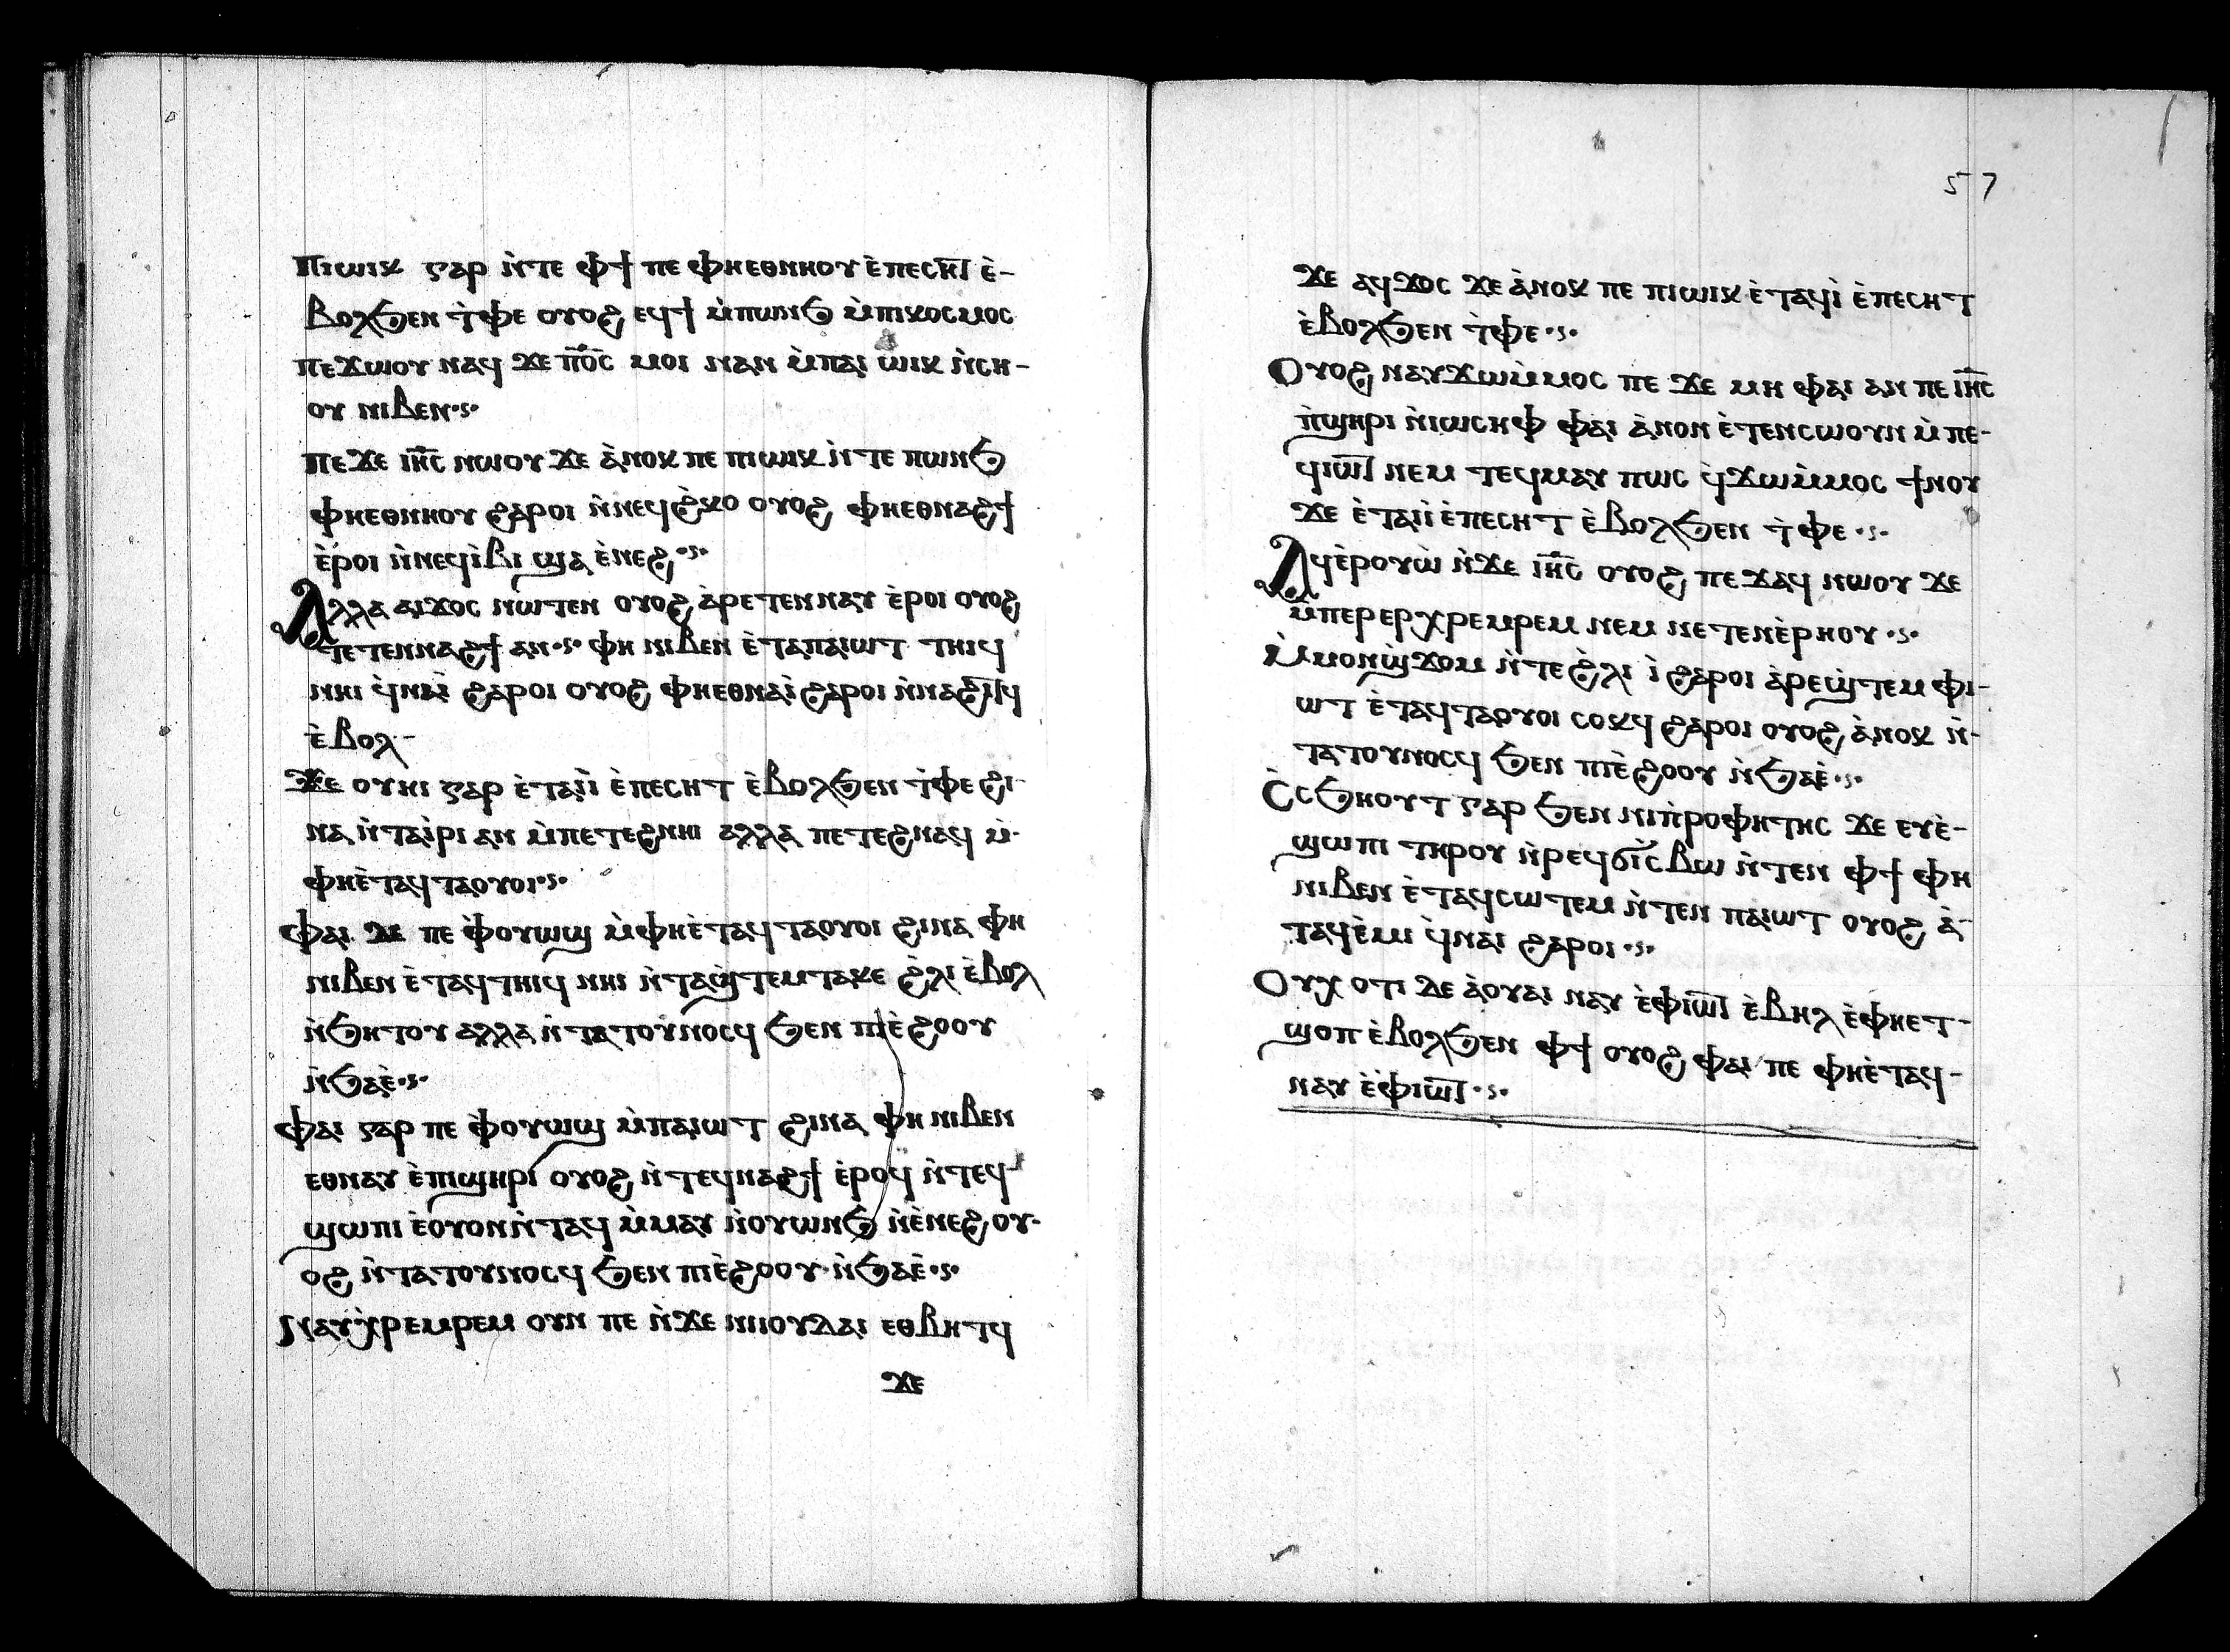 ⲡⲓⲱⲓⲕ ⲅⲁⲣ ⲛ̀ⲧⲉ ⲫϯ ⲡⲉ ⲫⲏⲉⲑⲛⲏⲟⲩ ⲉ̀ⲡⲉⲥⲏⲧ̅ ⲉ̀-
ⲃⲟⲗϧⲉⲛ ⲧ̀ⲫⲉ ⲟⲩⲟϩ ⲉϥϯ ⲙ̀ⲡⲱⲛϧ ⲙ̀ⲡⲓⲕⲟⲥⲙⲟⲥ
ⲡⲉϫⲱⲟⲩ ⲛⲁϥ ϫⲉ ⲡ̅ⲟ̅ⲥ̅ ⲙⲟⲓ ⲛⲁⲛ ⲙ̀ⲡⲁⲓ ⲱⲓⲕ ⲛ̀ⲥⲏ-
ⲟⲩ ⲛⲓⲃⲉⲛ·ⲋ·
ⲡⲉϫⲉ ⲓ̅ⲏ̅ⲥ̅ ⲛⲱⲟⲩ ϫⲉ ⲁ̀ⲛⲟⲕ ⲡⲉ ⲡⲓⲱⲓⲕ ⲛ̀ⲧⲉ ⲡⲱⲛϧ
ⲫⲏⲉⲑⲛⲏⲟⲩ ϩⲁⲣⲟⲓ ⲛ̀ⲛⲉϥϩ̀ⲕⲟ ⲟⲩⲟϩ ⲫⲏⲉⲑⲛⲁϩϯ
ⲉ̀ⲣⲟⲓ ⲛ̀ⲛⲉϥⲓ̀ⲃⲓ ϣⲁ ⲉ̀ⲛⲉϩ·ⲋ·
Ⲁⲗⲗⲁ ⲁⲓϫⲟⲥ ⲛⲱⲧⲉⲛ ⲟⲩⲟϩ ⲁ̀ⲣⲉⲧⲉⲛⲛⲁⲩ ⲉ̀ⲣⲟⲓ ⲟⲩⲟϩ
ⲧⲉⲧⲉⲛⲛⲁϩϯ ⲁⲛ·ⲋ· ⲫⲏ ⲛⲓⲃⲉⲛ ⲉ̀ⲧⲁⲡⲁⲓⲱⲧ ⲧⲏⲓϥ
ⲛⲏⲓ ϥ̀ⲛⲁⲓ̀ ϩⲁⲣⲟⲓ ⲟⲩⲟϩ ⲫⲏⲉⲑⲛⲁⲓ̀ ϩⲁⲣⲟⲓ ⲛ̀ⲛⲁϩⲓⲧ̅ϥ
ⲉ̀ⲃⲟⲗ-
ϫⲉ ⲟⲩⲏⲓ ⲅⲁⲣ ⲉ̀ⲧⲁⲓⲓ̀ ⲉ̀ⲡⲉⲥⲏⲧ ⲉ̀ⲃⲟⲗϧⲉⲛ ⲧ̀ⲫⲉ ϩⲓ-
ⲛⲁ ⲛ̀ⲧⲁⲓ̀ⲣⲓ ⲁⲛ ⲙ̀ⲡⲉⲧⲉϩⲛⲏⲓ ⲁⲗⲗⲁ ⲡⲉⲧⲉϩⲛⲁϥ ⲙ̀-
ⲫⲏⲉ̀ⲧⲁϥⲧⲁⲟⲩⲟⲓ·ⲋ·
ⲫⲁⲓ ⲇⲉ ⲡⲉ ⲫ̀ⲟⲩⲱϣ ⲙ̀ⲫⲏⲉ̀ⲧⲁϥⲧⲁⲟⲩⲟⲓ ϩⲓⲛⲁ ⲫⲏ
ⲛⲓⲃⲉⲛ ⲉ̀ⲧⲁϥⲧⲏⲓϥ ⲛⲏⲓ ⲛ̀ⲧⲁϣ̀ⲧⲉⲙⲧⲁⲕⲉ ϩ̀ⲗⲓ ⲉ̀ⲃⲟⲗ
ⲛ̀ϧⲏⲧⲟⲩ ⲁⲗⲗⲁ ⲛ̀ⲧⲁⲧⲟⲩⲛⲟⲥϥ ϧⲉⲛ ⲡⲓⲉ̀ϩⲟⲟⲩ
ⲛ̀ϧⲁⲉ̀·ⲋ·
ⲫⲁⲓ ⲅⲁⲣ ⲡⲉ ⲫ̀ⲟⲩⲱϣ ⲙ̀ⲡⲁⲓⲱⲧ ϩⲓⲛⲁ ⲫⲏ ⲛⲓⲃⲉⲛ
ⲉⲑⲛⲁⲩ ⲉ̀ⲡⲓϣⲏⲣⲓ ⲟⲩⲟϩ ⲛ̀ⲧⲉϥⲛⲁϩϯ ⲉ̀ⲣⲟϥ ⲛ̀ⲧⲉϥ-
ϣⲱⲡⲓ ⲉ̀ⲟⲩⲟⲛⲛ̀ⲧⲁϥ ⲙ̀ⲙⲁⲩ ⲛ̀ⲟⲩⲱⲛϧ ⲛ̀ⲉ̀ⲛⲉϩ ⲟⲩ-
ⲟϩ ⲛ̀ⲧⲁⲧⲟⲩⲛⲟⲥϥ ϧⲉⲛ ⲡⲓⲉ̀ϩⲟⲟⲩ ⲛ̀ϧⲁⲉ̀·ⲋ·
Ⲛⲁⲩⲭ̀ⲣⲉⲙⲣⲉⲙ ⲟⲩⲛ ⲡⲉ ⲛ̀ϫⲉ ⲛⲓⲓⲟⲩⲇⲁⲓ ⲉⲑⲃⲏⲧϥ
ϫⲉ
57
ϫⲉ ⲁϥϫⲟⲥ ϫⲉ ⲁ̀ⲛⲟⲕ ⲡⲉ ⲡⲓⲱⲓⲕ ⲉ̀ⲧⲁϥⲓ̀ ⲉ̀ⲡⲉⲥⲏⲧ
ⲉ̀ⲃⲟⲗϧⲉⲛ ⲧ̀ⲫⲉ·ⲋ·
Ⲟⲩⲟϩ ⲛⲁⲩϫⲱⲙ̀ⲙⲟⲥ ⲡⲉ ϫⲉ ⲙⲏ ⲫⲁⲓ ⲁⲛ ⲡⲉ ⲓ̅ⲏ̅ⲥ̅
ⲡ̀ϣⲏⲣⲓ ⲛ̀ⲓⲱⲥⲏⲫ ⲫⲁⲓ ⲁ̀ⲛⲟⲛ ⲉ̀ⲧⲉⲛⲥⲱⲟⲩⲛ ⲙ̀ⲡⲉ-
ϥⲓⲱⲧ̅ ⲛⲉⲙ ⲧⲉϥⲙⲁⲩ ⲡⲱⲥ ϥ̀ϫⲱⲙ̀ⲙⲟⲥ ϯⲛⲟⲩ
ϫⲉ ⲉ̀ⲧⲁⲓⲓ̀ ⲉ̀ⲡⲉⲥⲏⲧ ⲉ̀ⲃⲟⲗϧⲉⲛ ⲧ̀ⲫⲉ·ⲋ·
Ⲁϥⲉ̀ⲣⲟⲩⲱ̀ ⲛ̀ϫⲉ ⲓ̅ⲏ̅ⲥ̅ ⲟⲩⲟϩ ⲡⲉϫⲁϥ ⲛⲱⲟⲩ ϫⲉ
ⲙ̀ⲡⲉⲣⲉⲣⲭⲣⲉⲙⲣⲉⲙ ⲛⲉⲙ ⲛⲉⲧⲉⲛⲉ̀ⲣⲏⲟⲩ·ⲋ·
Ⲙ̀ⲙⲟⲛϣ̀ϫⲟⲙ ⲛ̀ⲧⲉ ϩ̀ⲗⲓ ⲓ̀ ϩⲁⲣⲟⲓ ⲁ̀ⲣⲉϣ̀ⲧⲉⲙ ⲫⲓ-
ⲱⲧ ⲉ̀ⲧⲁϥⲧⲁⲟⲩⲟⲓ ⲥⲟⲕϥ ϩⲁⲣⲟⲓ ⲟⲩⲟϩ ⲁ̀ⲛⲟⲕ ⲛ̀-
ⲧⲁⲧⲟⲩⲛⲟⲥϥ ϧⲉⲛ ⲡⲓⲉ̀ϩⲟⲟⲩ ⲛ̀ϧⲁⲉ̀·ⲋ·
Ⲥ̀ⲥϧⲏⲟⲩⲧ ⲅⲁⲣ ϧⲉⲛ ⲛⲓⲡ̀ⲣⲟⲫⲏⲧⲏⲥ ϫⲉ ⲉⲩⲉ̀-
ϣⲱⲡⲓ ⲧⲏⲣⲟⲩ ⲛ̀ⲣⲉϥϭⲓⲥ̀ⲃⲱ ⲛ̀ⲧⲉⲛ ⲫϯ ⲫⲏ
ⲛⲓⲃⲉⲛ ⲉ̀ⲧⲁϥⲥⲱⲧⲉⲙ ⲛ̀ⲧⲉⲛ ⲡⲁⲓⲱⲧ ⲟⲩⲟϩ ⲁ̀-
ⲧⲁϥⲉ̀ⲙⲓ ϥ̀ⲛⲁⲓ ϩⲁⲣⲟⲓ·ⲋ·
Ⲟⲩⲭ ⲟⲧⲓ ⲇⲉ ⲁ̀ⲟⲩⲁⲓ ⲛⲁⲩ ⲉ̀ⲫⲓⲱⲧ̅ ⲉ̀ⲃⲏⲗ ⲉ̀ⲫⲏⲉⲧ-
ϣⲟⲡ ⲉ̀ⲃⲟⲗϧⲉⲛ ⲫϯ ⲟⲩⲟϩ ⲫⲁⲓ ⲡⲉ ⲫⲏⲉ̀ⲧⲁϥ-
ⲛⲁⲩ ⲉ̀ⲫⲓⲱⲧ̅·ⲋ·